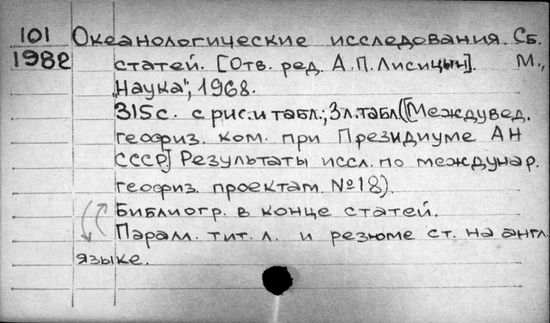 101 Океанологические исследования. Сб.
1982 статей. [Отв. ред. А.П.Лисицын]. М.,
„Наука", 1968.
315с. с рис. и табл.; 3л.табл ([Междувед.
геофиз. ком. при Президиуме АН
СССР] Результаты иссл. по междунар.
геофиз. проектам. №18).
Библиогр. в конце статей.
Паралл. тит. л. и резюме ст. на англ.
языке.